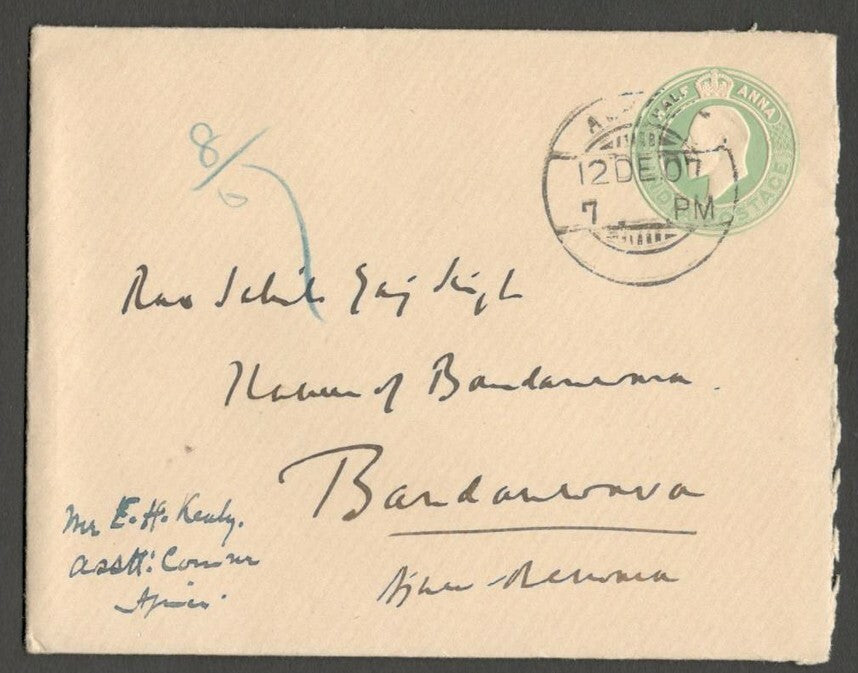 HALF ANNA
INDIA POSTAGE
12 DE 07
7 PM
8/
Rao Sahib Gaj Singh
Thakur of Bandanwara.
Bandanwara
Ajmer-Merwara
Mr E. H. Kealy.
Asstt: Commr
Ajmer.